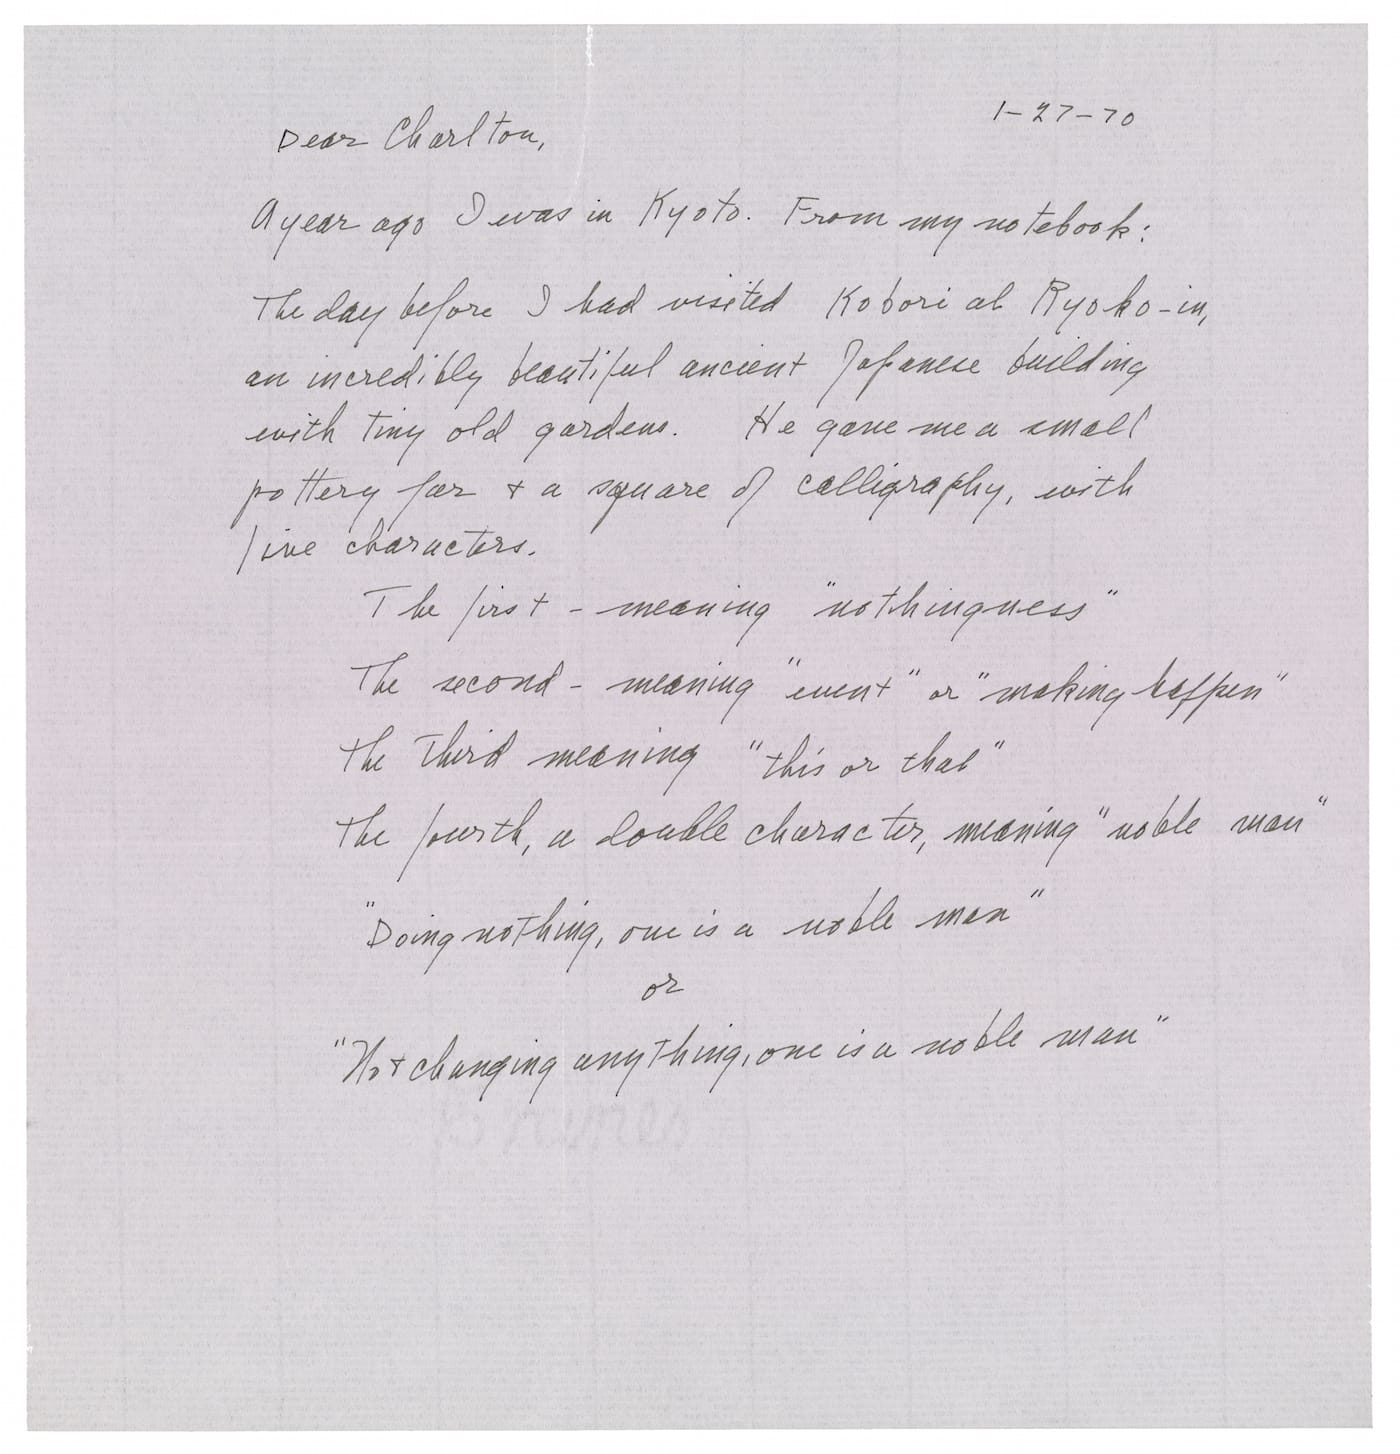 1-27-70
Dear Charlton,
A year ago I was in Kyoto. From my notebook:
The day before I had visited Kobori at Ryoko-in,
an incredibly beautiful ancient Japanese building
with tiny old gardens. He gave me a small
pottery jar + a square of calligraphy, with
five characters.
The first - meaning "nothingness"
The second - meaning "event" or "making happen"
the third meaning "this or that"
the fourth, a double character, meaning "noble man"
"Doing nothing, one is a noble man"
or
"Not changing anything, one is a noble man"